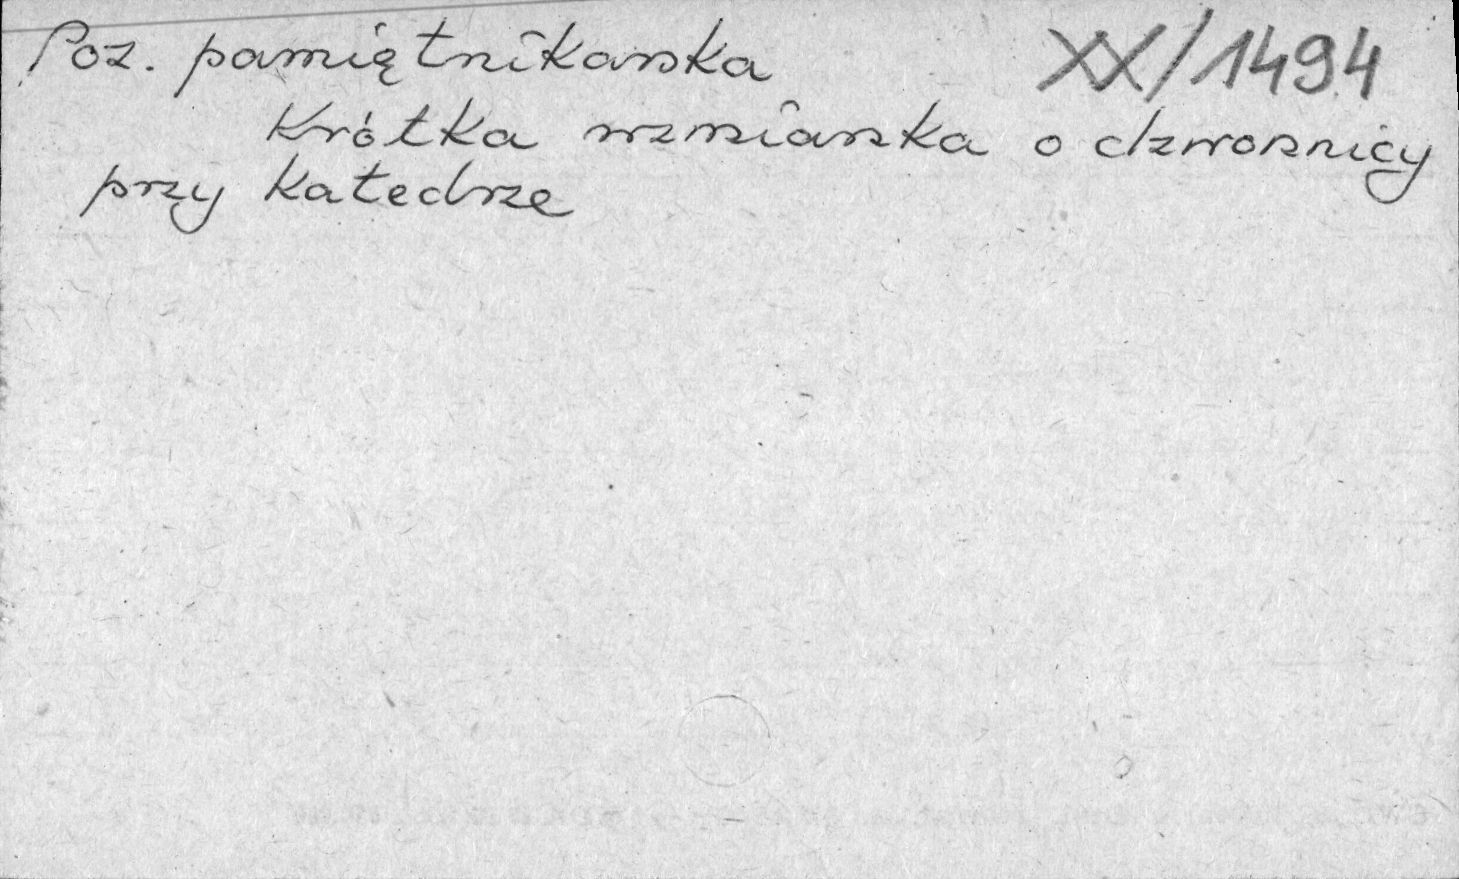 Poz. pamiętnikarska XX/1494
Krótka wzmianka o dzwonnicy
przy katedrze